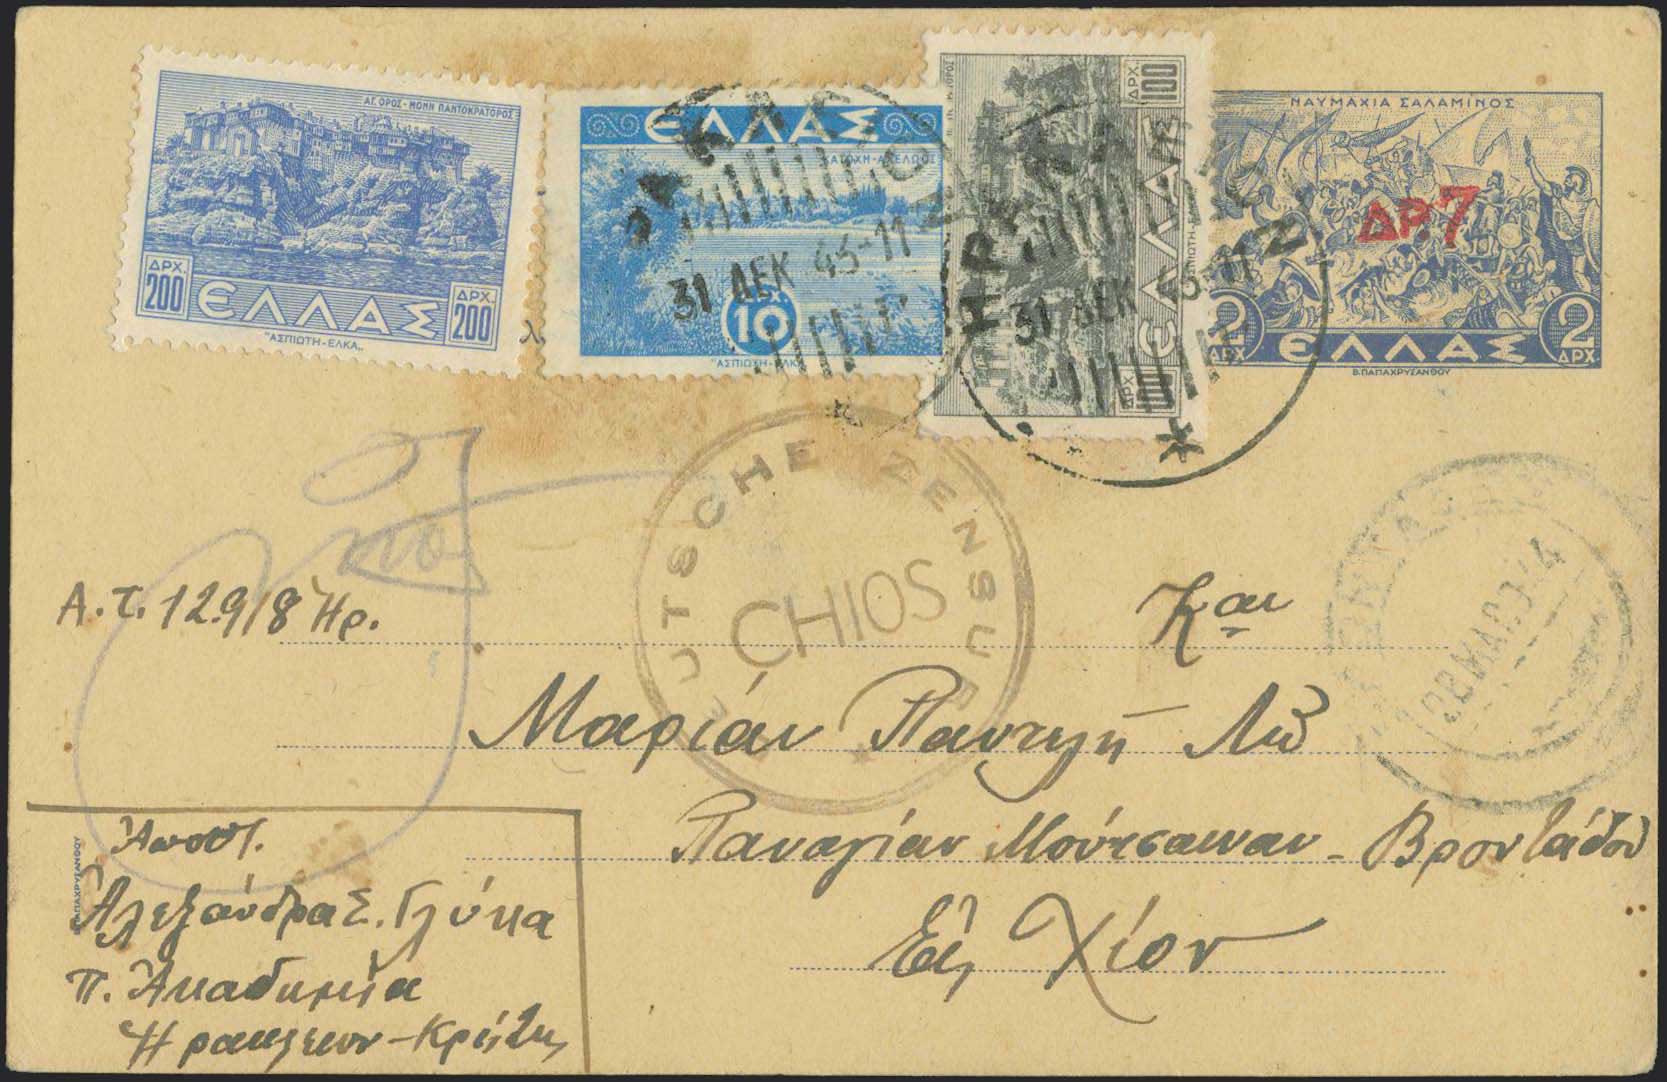 ΑΓ. ΟΡΟΣ - ΜΟΝΗ ΠΑΝΤΟΚΡΑΤΟΡΟΣ
ΔΡΧ. 200
ΕΛΛΑΣ
ΔΡΧ. 200
"ΑΣΠΙΩΤΗ-ΕΛΚΑ"
ΕΛΛΑΣ
ΚΑΤΟΧΗ-ΑΧΕΛΩΟΣ
ΔΡΧ. 10
"ΑΣΠΙΩΤΗ-ΕΛΚΑ"
31 ΔΕΚ 43-11
ΔΡΧ. 100
ΕΛΛΑΣ
ΔΡΧ. 100
31 ΔΕΚ 43-11
ΝΑΥΜΑΧΙΑ ΣΑΛΑΜΙΝΟΣ
ΔΡ. 7
2 ΔΡΧ.
ΕΛΛΑΣ
2 ΔΡΧ.
Β.ΠΑΠΑΧΡΥΣΑΝΘΟΥ
DEUTSCHE ZENSUR
CHIOS
28 ΜΑΡ 44
Α.τ. 12918 Ηρ.
Καν
Μαρίαν Παντελή Λω
Παναγίαν Μούτσαιναν - Βροντάδου
Εἰς Χίον
Β.ΠΑΠΑΧΡΥΣΑΝΘΟΥ
Ἀποστ.
Ἀλεξάνδρα Σ. Γλύκα
π. Ἀκαδημία
Ηρακλειον - Κρήτης